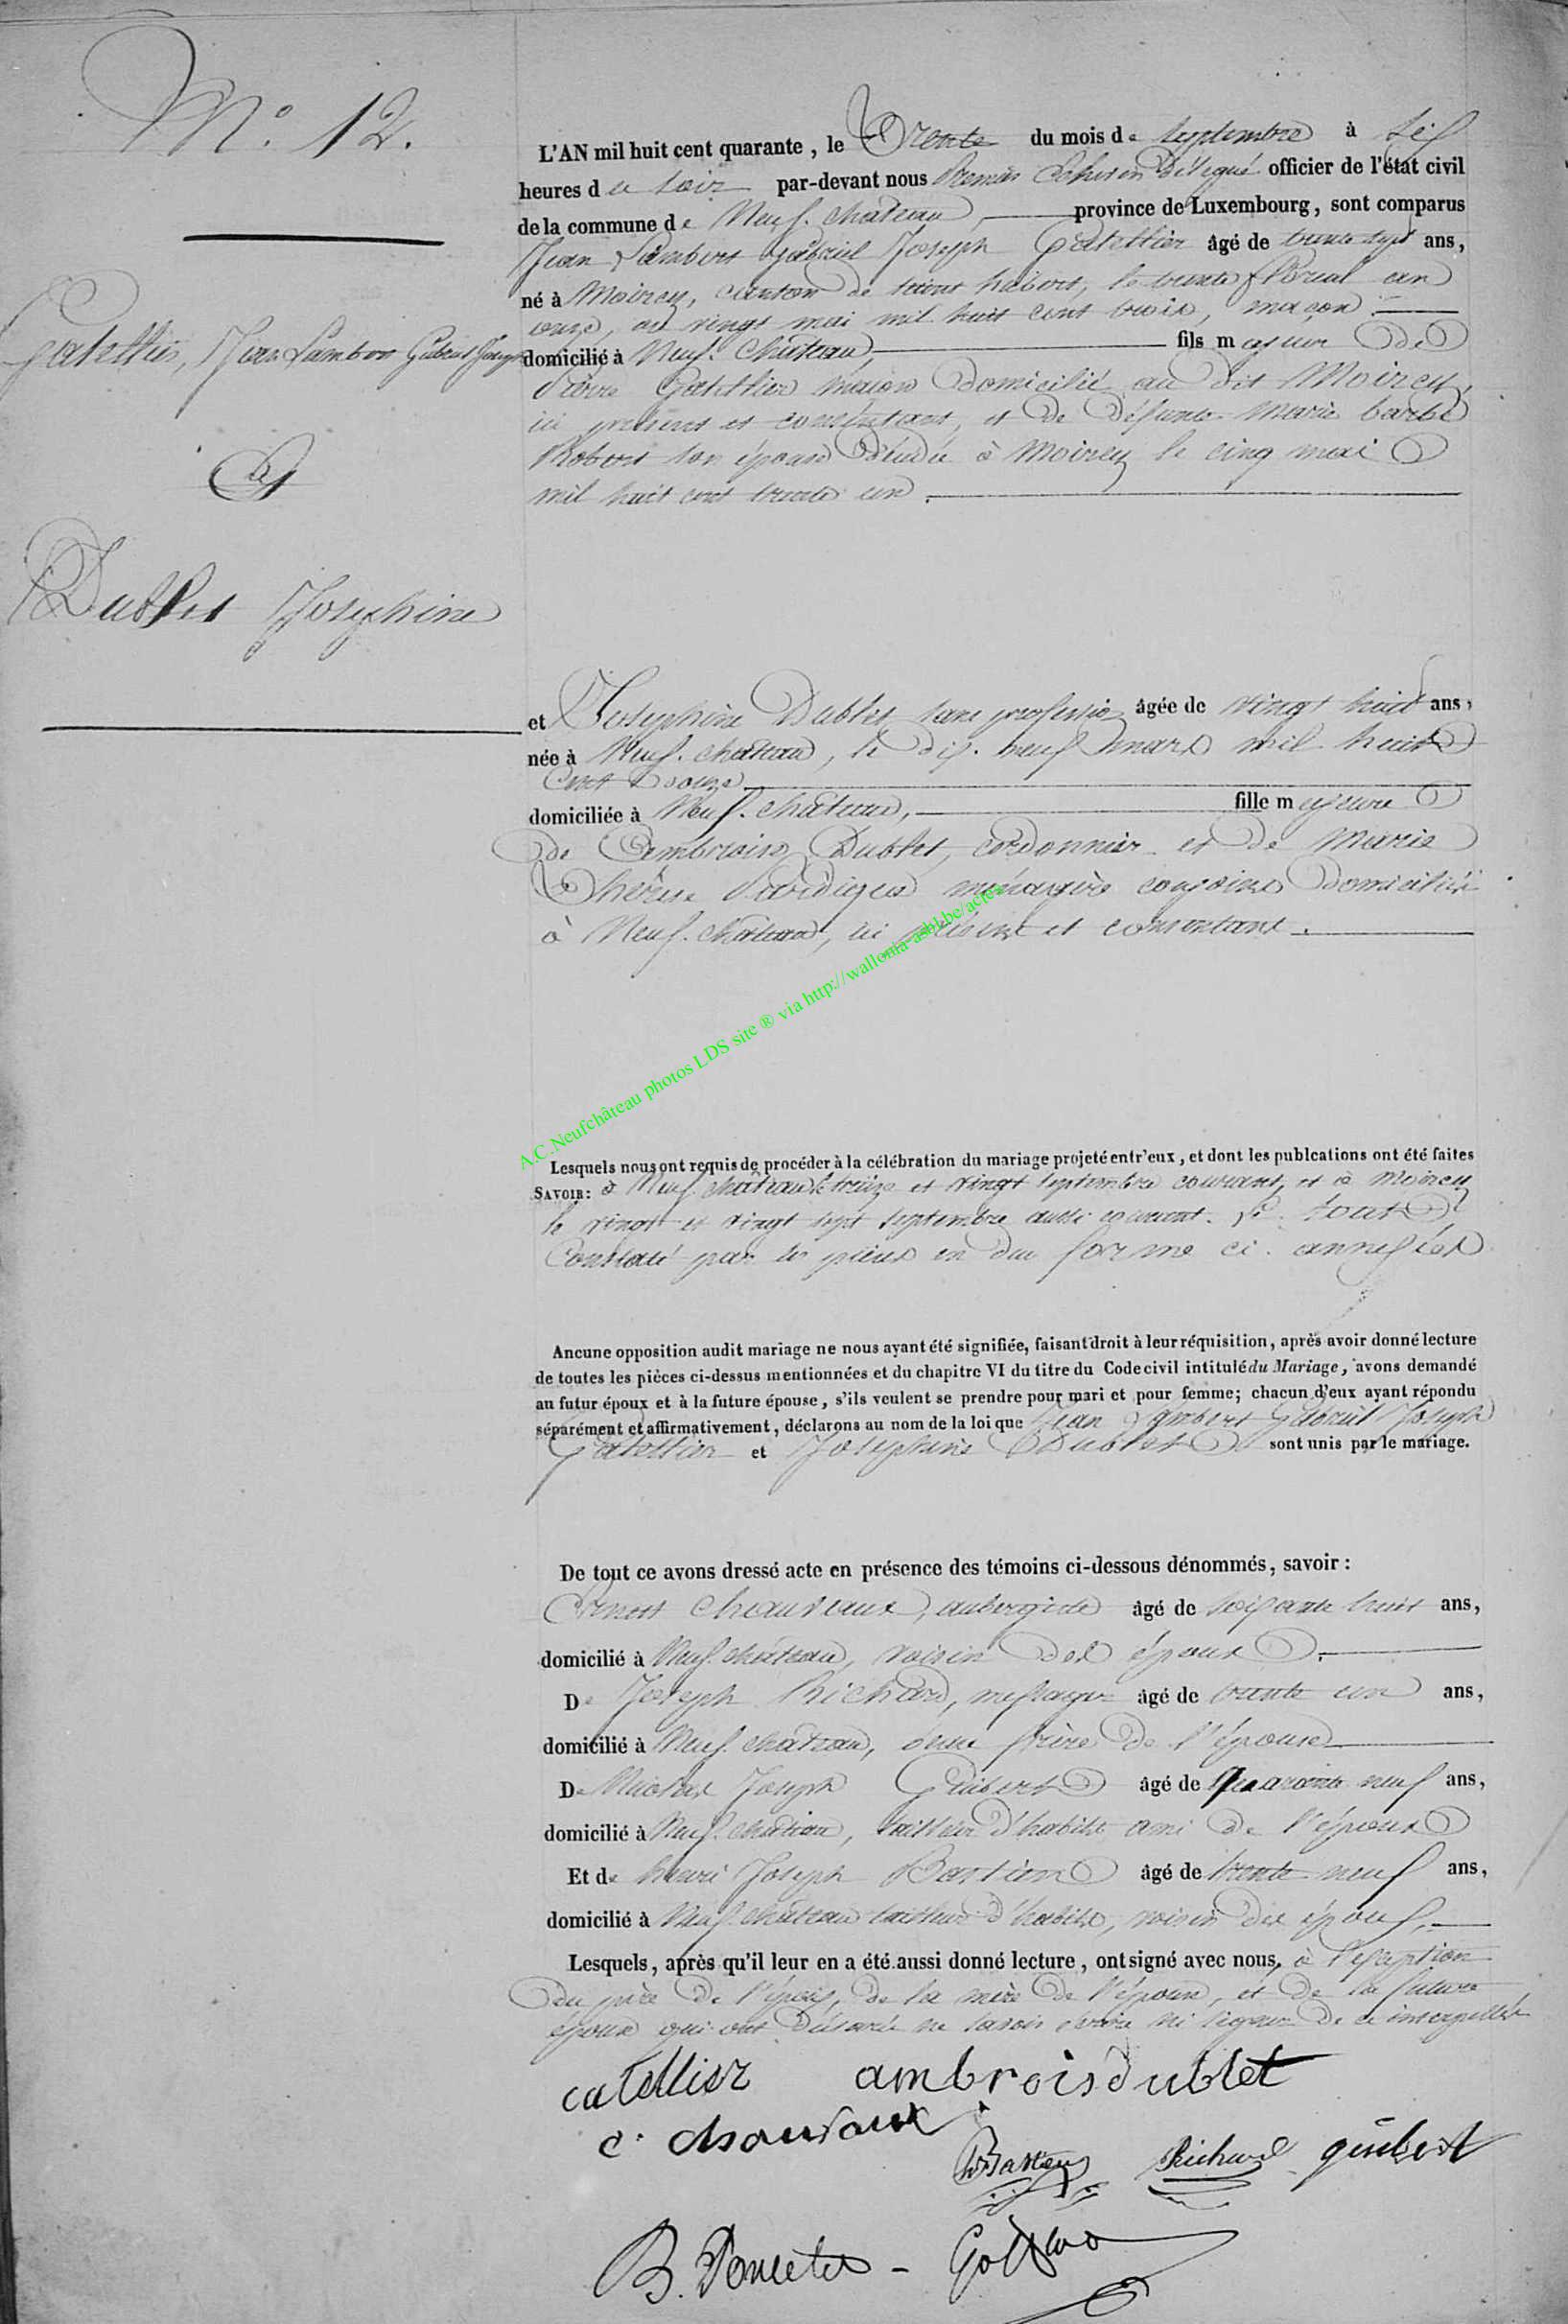 N.° 12.
Gatellier, Jean Lambert Gabriel Joseph
et
Dublet Josephine
L'AN mil huit cent quarante, le Trente du mois de septembre à six
heures du soir par-devant nous Premier Echevin Délégué officier de l'état civil
de la commune de Neuf-chateau, province de Luxembourg, sont comparus
Jean Lambert Gabriel Joseph Gatellier âgé de trente sept ans,
né à Moircy, canton de saint hubert, le trente floréal an
onze, au vingt mai mil huit cent trois, maçon
domicilié à Neuf-Château, fils majeur de
Pierre Gatellier maçon domicilié au dit Moircy,
ici présent et consentant, et de défunte Marie barbe
Robert son épouse décédée à Moircy le cinq mai
mil huit cent trente un.
et Josephine Dublet sans profession âgée de vingt huit ans,
née à Neuf-chateau, le dix-neuf mars mil huit
Cent douze
domiciliée à Neuf-chateau, fille majeure
de Ambroise Dublet, cordonnier et de Marie
Thérèse ménagère conjoints domiciliés
à Neuf-chateau, ici présent et consentant.
A.C.Neufchâteau photos LDS site ® via http://wallonia-asbl.be/actes
Lesquels nous ont requis de procéder à la célébration du mariage projeté entr'eux, et dont les publcations ont été faites
SAVOIR: à Neuf-château le treize et vingt septembre courant, et à Moircy
le vingt et vingt sept septembre aussi courant. Le tout
Constaté par les pièces en due forme ci-annexées
Aucune opposition audit mariage ne nous ayant été signifiée, faisant droit à leur réquisition, après avoir donné lecture
de toutes les pièces ci-dessus mentionnées et du chapitre VI du titre du Code civil intitulé du Mariage, avons demandé
au futur époux et à la future épouse, s'ils veulent se prendre pour mari et pour femme; chacun d'eux ayant répondu
séparément et affirmativement, déclarons au nom de la loi que Jean Lambert Gabriel Joseph
Gatellier et Josephine Dublet sont unis par le mariage.
De tout ce avons dressé acte en présence des témoins ci-dessous dénommés, savoir:
Ernest Chauveaux, aubergiste âgé de soixante huit ans,
domicilié à Neuf-château, voisin des époux.
De Joseph Richard, messager âgé de trente un ans,
domicilié à Neuf-château, beau frère de l'épouse
De Nicolas Joseph Guibert âgé de quarante neuf ans,
domicilié à Neuf-château, tailleur d'habits ami de l'époux
Et de henri Joseph Bastien âgé de trente neuf ans,
domicilié à Neuf-château tailleur d'habits, voisin des époux,
Lesquels, après qu'il leur en a été aussi donné lecture, ont signé avec nous, à l'exception
du père de l'époux, de la mère de l'épouse, et de la future
épouse qui ont déclaré ne savoir écrire ni signer de ce interpellés
catellier ambrois dublet
e. chauvaux
Bastien Richard guibert
B. Poncelet